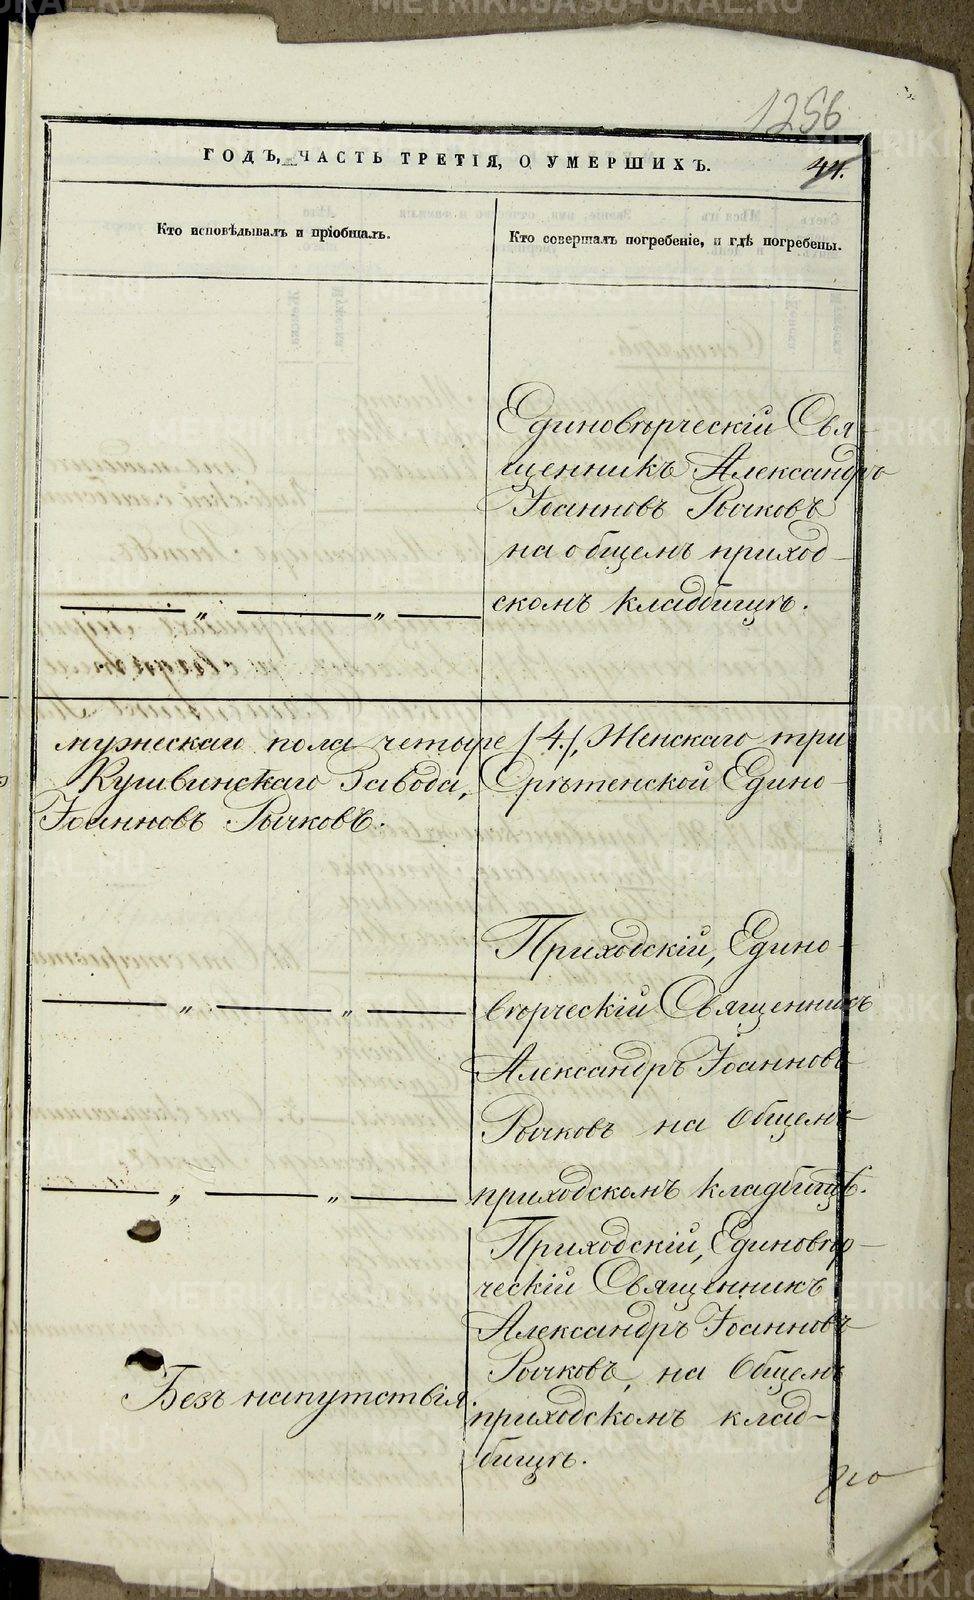 1256
ГОДЪ, ЧАСТЬ ТРЕТІЯ, О УМЕРШИХЪ.
44.
Кто исповѣдывалъ и пріобщалъ.
Кто совершалъ погребеніе, и гдѣ погребены.
Единовѣрческій Свя-
щенникъ Александръ
Іоанновъ Рычковъ
на общемъ приход-
скомъ кладбищѣ.
— „ — „ —
мужескаго пола четыре /4./, Женскаго три
Кушвинскаго Завода, Срѣтенской Едино-
Іоанновъ Рычковъ.
Приходскій, Едино-
вѣрческій Священникъ
— „ — „ —
Александръ Іоанновъ
Рычковъ на Общемъ
приходскомъ кладбищѣ.
— „ — „ —
Приходскій, Единовѣр-
ческій Священникъ
Александръ Іоанновъ
Рычковъ, на Общемъ
Безъ напутствія.
приходскомъ клад-
бищѣ.
METRIKI.GASO-URAL.RU